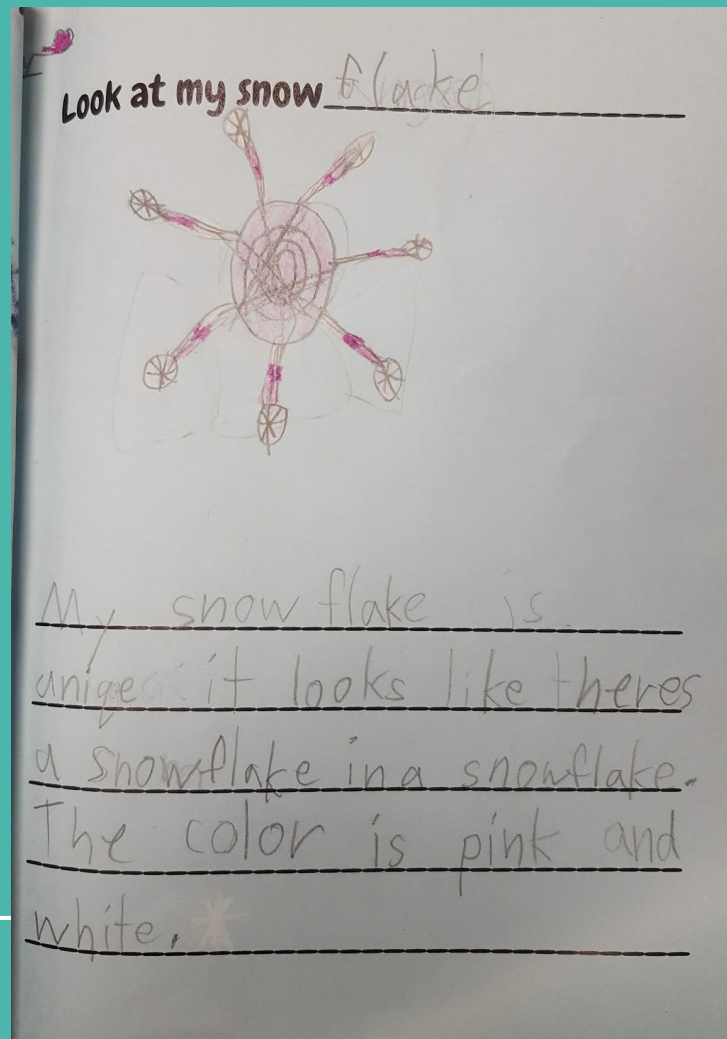 Look at my snow flacke
My snow flake is
uniqe it looks like theres
a snowflake in a snowflake.
The color is pink and
white.